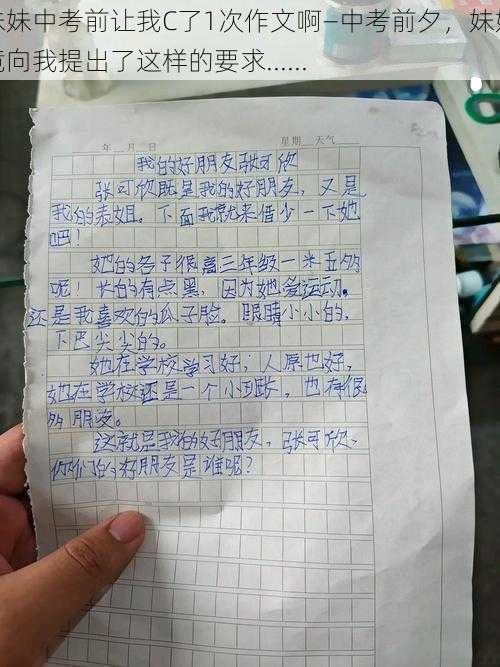 妹妹中考前让我C了1次作文啊—中考前夕，妹妹
竟向我提出了这样的要求......
年 月 日 星期 天气
我的好朋友张可欣
张可欣既是我的好朋友，又是
我的表姐。下面我就来借少一下她
吧！
她的各子很高三年级一米五多
呢！长的有点黑，因为她爱运动。
还是我喜欢的瓜子脸。眼睛小小的，
下巴尖尖的。
她在学校学习好；人原也好，
她在学校还是一个小班长，也有很
多朋友。
这就是我的好朋友，张可欣、
你们的好朋友是谁呢？